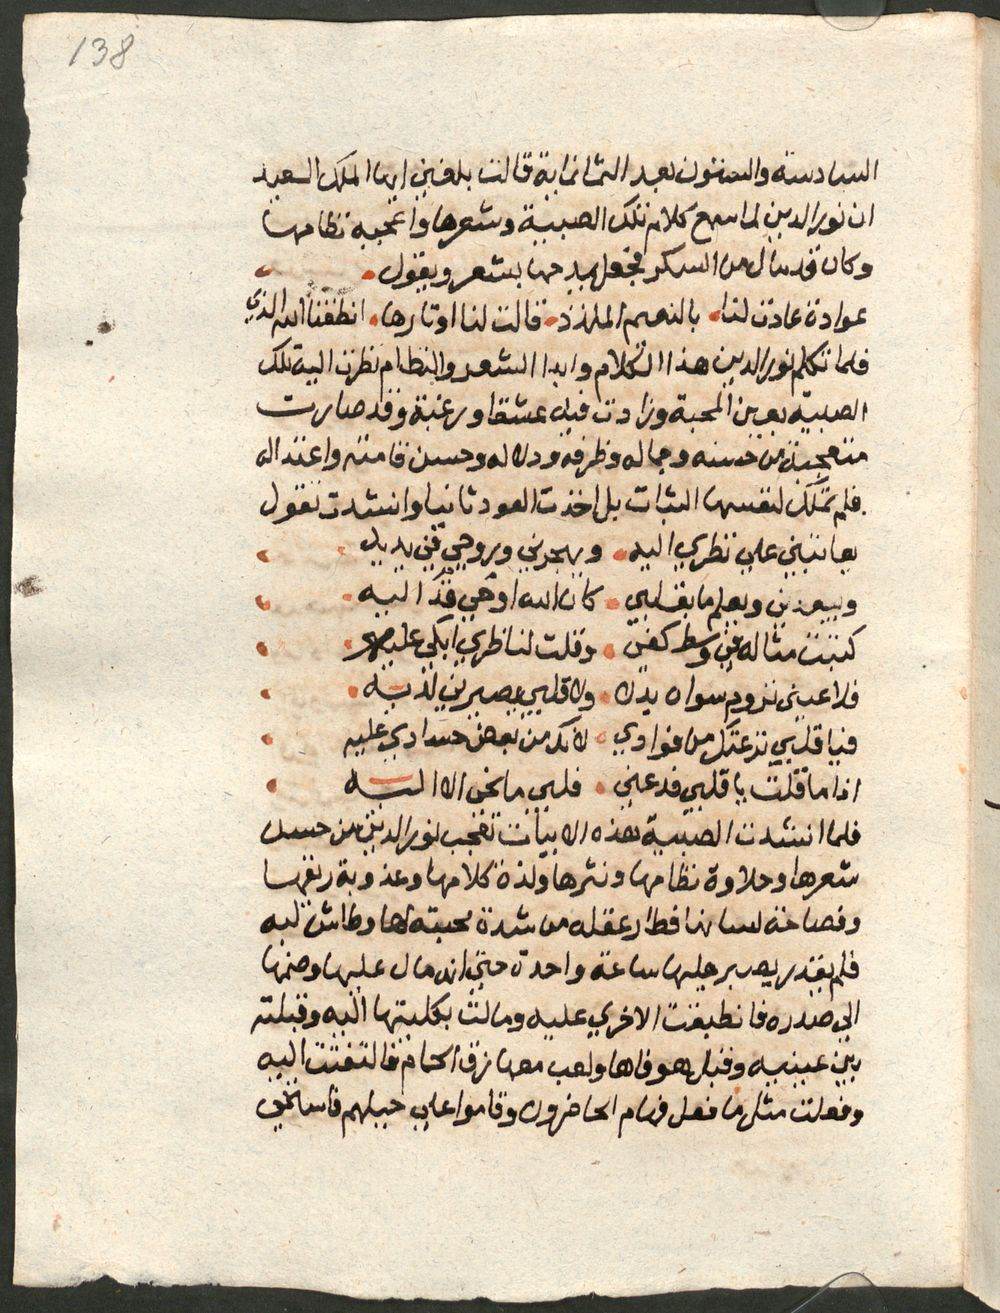 138
السادسة والستون بعد الثمانماية قالت بلغني ايها الملك السعيد
ان نور الدين لما سمع كلام تلك الصبية وشعرها واعجبه نظامها
وكان قد مال من السكر فجعل يمدحها بشعر ويقول
عوادة عادت لنا بالنعم الملذذ قالت لنا اوتارها انطقنا الله الذي
فلما تكلم نور الدين هذا الكلام وابدا الشعر والنظام نظرت اليه تلك
الصبية بعين المحبة وزادت فيه عشقا ورغبة وقد صارت
متعجبة من حسنه وجماله وظرفه ودلاله وحسن قامته واعتداله
فلم تملك لنفسها الثبات بل اخذت العود ثانيا وانشدت تقول
يعاتبني علي نظري اليه ويهجرني وروحي في يديه
ويبعدني ويعلم ما بقلبي كان الله اوحي قد اليه
كتبت مثاله في وسط كفي وقلت لناظري ابكي عليه
فلا عيني تروم سواه بدلا ولا قلبي يصبرني لديه
فيا قلبي نزعتك من فوادي لانك من بعض حسادي عليه
اذا ما قلت يا قلبي فدعني فلبي ما نحن الا اليه
فلما انشدت الصبية هذه الابيات تعجب نور الدين من حسن
شعرها وحلاوة نظامها ونثرها ولذة كلامها وعذوبة ريقها
وفصاحة لسانها فطار عقله من شدة محبته لها وطاش لبه
فلم يقدر يصبر عليها ساعة واحدة حتي انه مال عليها وضمها
الي صدره فانطبقت الاخري عليه ومالت بكليتها اليه وقبلته
بين عينيه وقبل هو فاها ولعب معها زق الحمام فالتفتت اليه
وفعلت مثل ما فعل فهام الحاضرون وقاموا علي حيلهم فاستحي